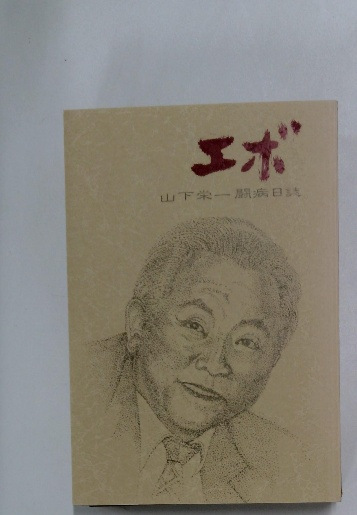 エボ
山下栄一闘病日誌